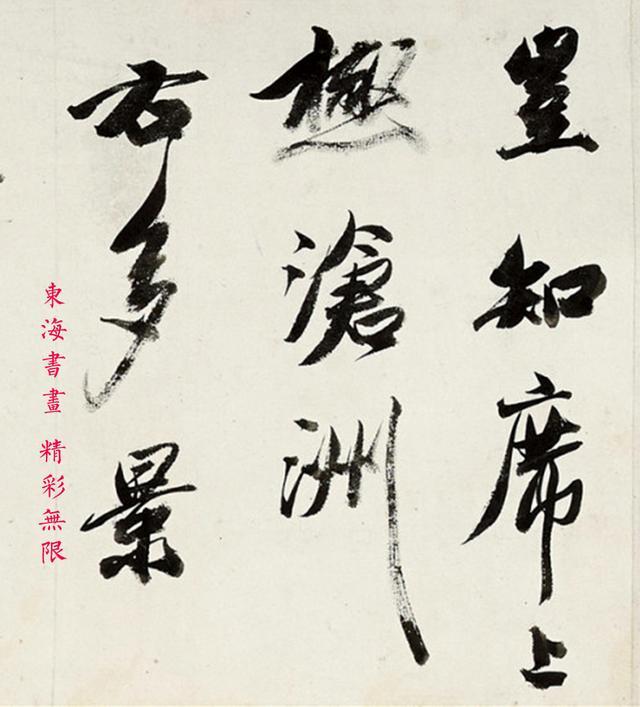 豈知席上
極滄洲
右多景
東海書畫 精彩無限